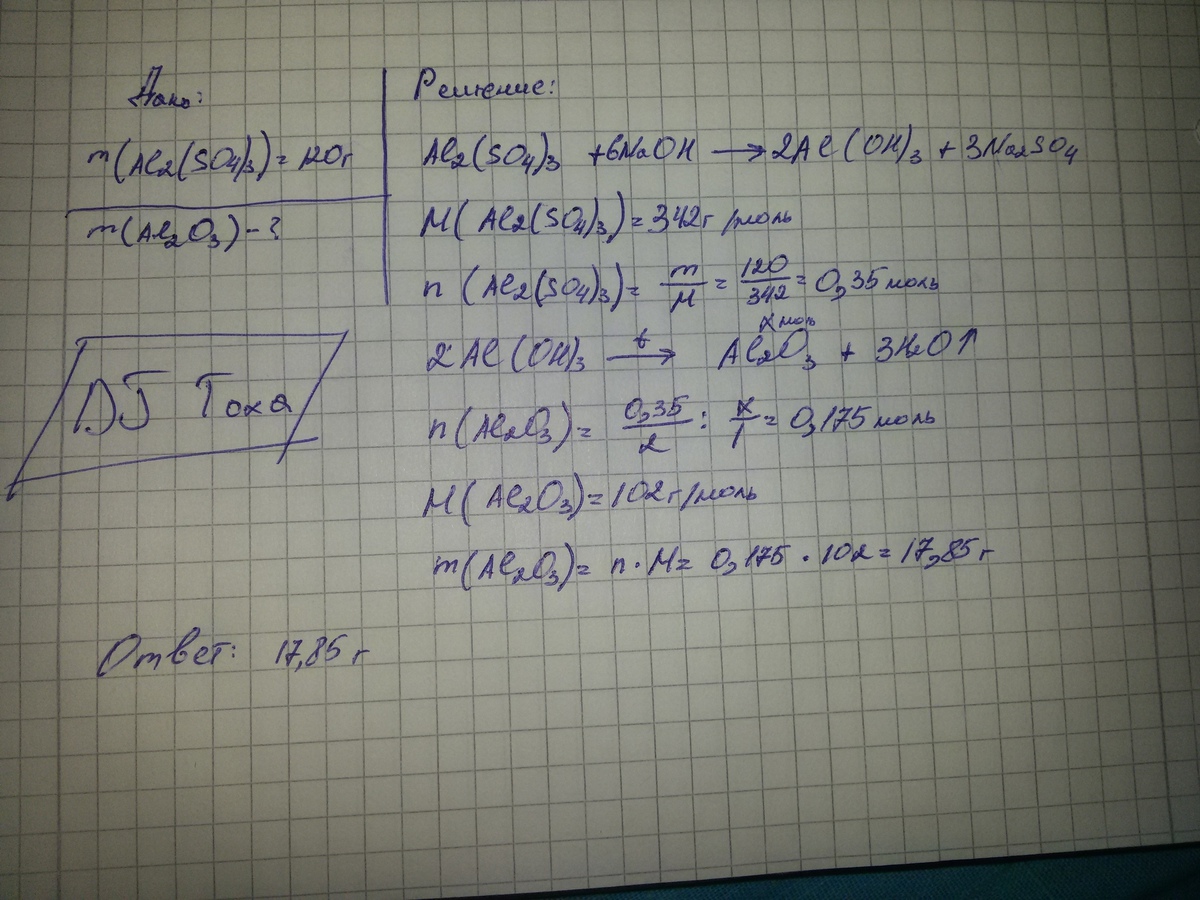 Дано:
m(Al2(SO4)3) = 120г
m(Al2O3) - ?
DJ Тоха
Решение:
Al2(SO4)3 + 6NaOH → 2Al(OH)3 + 3Na2SO4
M(Al2(SO4)3) = 342г/моль
n(Al2(SO4)3) = m/M = 120/342 = 0,35 моль
x моль
2Al(OH)3 t→ Al2O3 + 3H2O↑
n(Al2O3) = 0,35/2 : x/1 = 0,175 моль
M(Al2O3) = 102г/моль
m(Al2O3) = n · M = 0,175 · 102 = 17,85 г
Ответ: 17,85 г